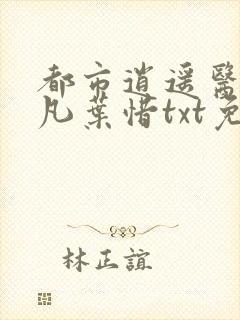 都市逍遥醫
凡葉惜txt免
林正誼